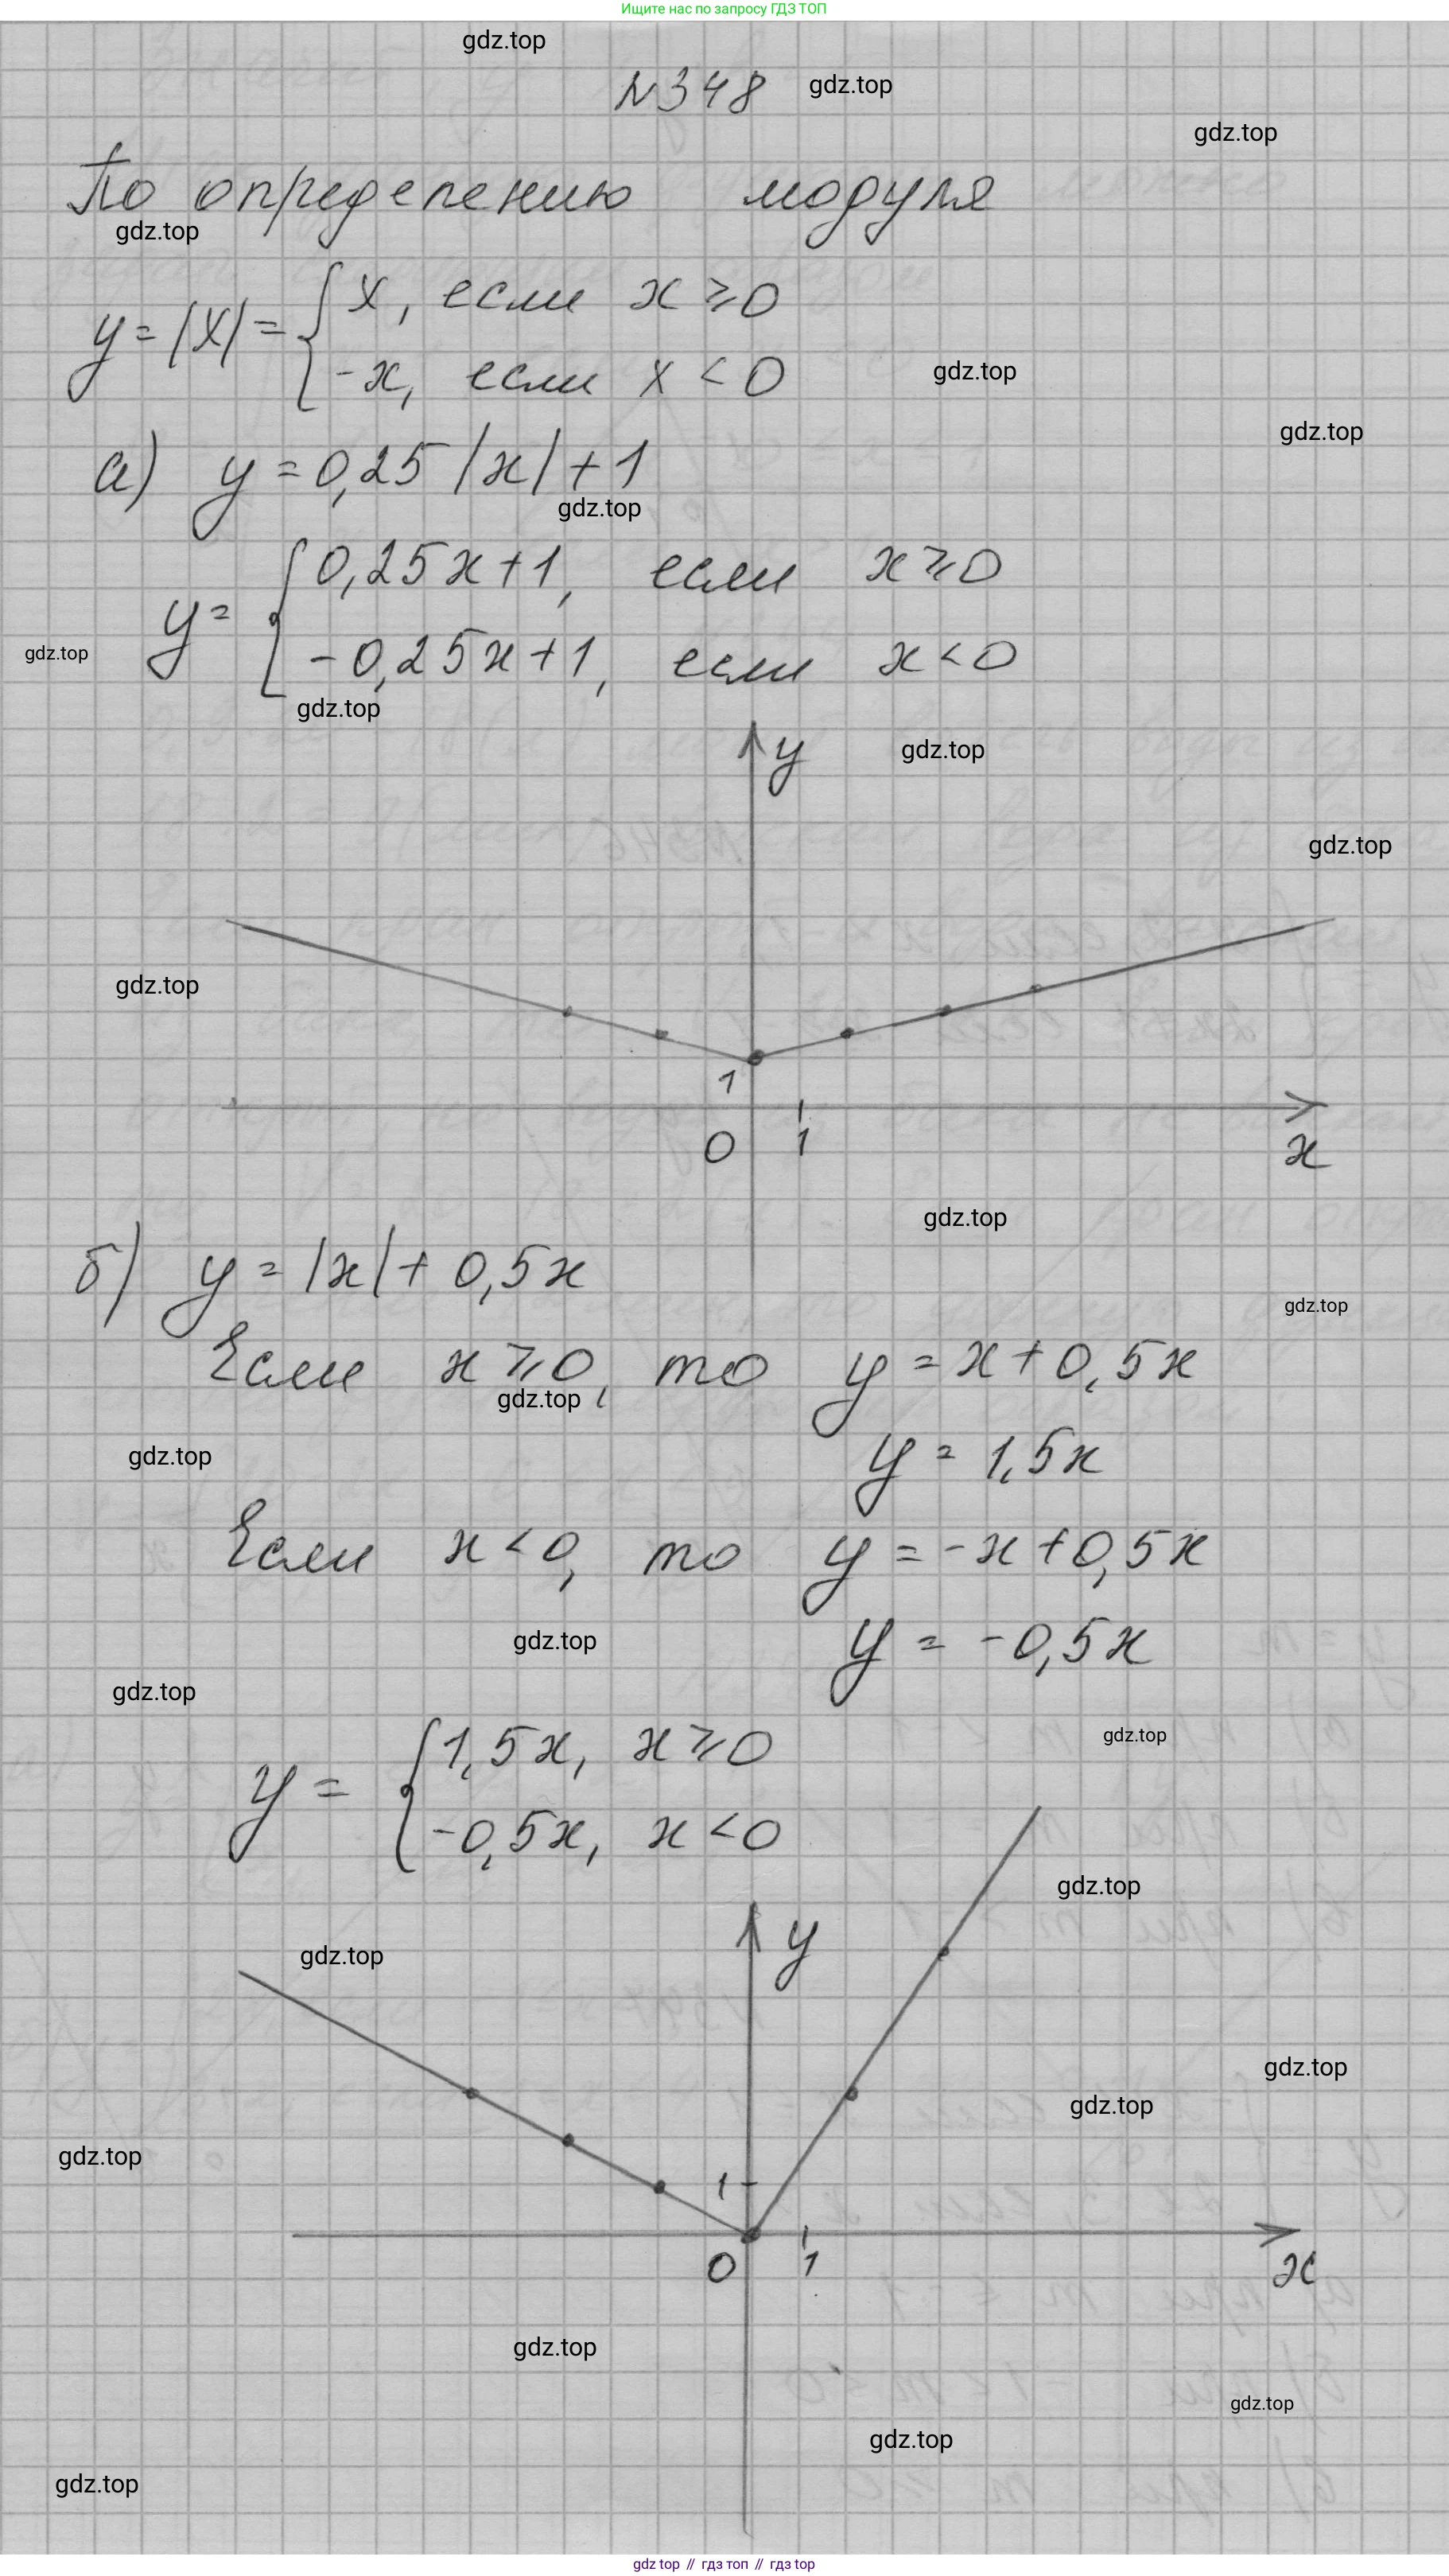 Ищите нас по запросу ГДЗ ТОП
gdz.top
№348 gdz.top
gdz.top
По определению модуля
gdz.top
y = |x| = { x, если x ≥ 0
-x, если x < 0
gdz.top
gdz.top
а) y = 0,25 |x| + 1
gdz.top
y = { 0,25x + 1, если x ≥ 0
-0,25x + 1, если x < 0
gdz.top
gdz.top
y
gdz.top
gdz.top
gdz.top
1
0 1 x
gdz.top
б) y = |x| + 0,5x
gdz.top
Если x ≥ 0, то y = x + 0,5x
gdz.top
y = 1,5x
gdz.top
Если x < 0, то y = -x + 0,5x
gdz.top
y = -0,5x
gdz.top
gdz.top
y = { 1,5x, x ≥ 0
-0,5x, x < 0
gdz.top
y
gdz.top
gdz.top
gdz.top
gdz.top
1
0 1 x
gdz.top
gdz.top
gdz.top
gdz.top
gdz top // гдз топ // гдз top